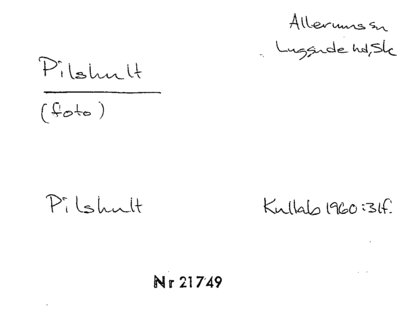 Allerums sn
Luggude hd, Sk
Pilshult
(foto)
Pilshult Kullab 1960:31f.
Nr 21749